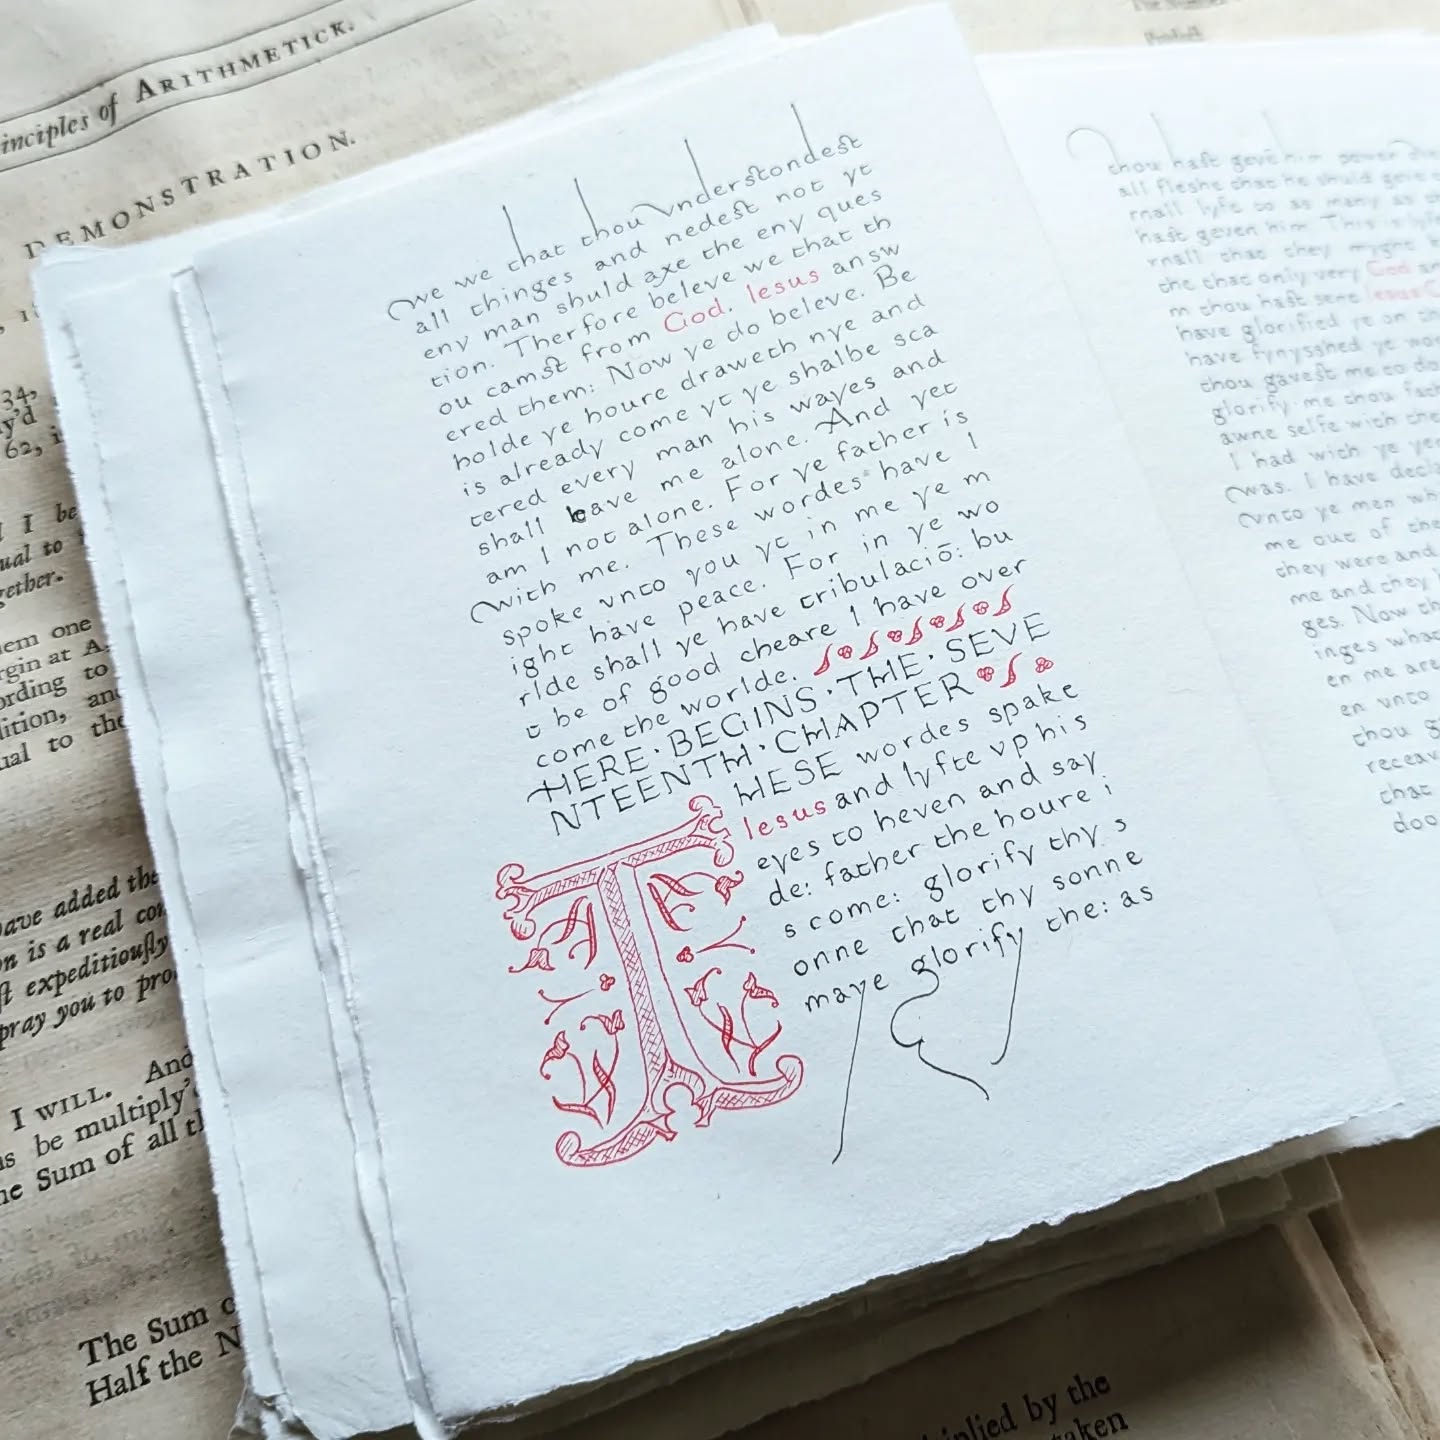 inciples of ARITHMETICK.
DEMONSTRATION.
34,
y'd
62, i
I be
ual to
gether.
em one
rgin at A.
ording to
dition, and
ual to the
have added the
n is a real con
ſt expeditiouſly
pray you to pro
I WILL. And
as be multiply'
he Sum of all th
The Sum o
Half the N
iplied by the
taken
we we that thou vnderstondest
all thinges and nedest not yt
eny man shuld axe the eny ques
tion. Therfore beleve we that th
ou camst from God. Iesus answ
ered them: Now ye do beleve. Be
holde ye houre draweth nye and
is already come yt ye shalbe sca
tered every man his wayes and
shall leave me alone. And yet
am I not alone. For ye father is
with me. These wordes have I
spoke vnto you yt in me ye m
ight have peace. For in ye wo
rlde shall ye have tribulaciō: bu
t be of good cheare I have over
come the worlde.
HERE·BEGINS·THE·SEVE
NTEENTH·CHAPTER
THESE wordes spake
Iesus and lyfte vp his
eyes to heven and say
de: father the houre i
s come: glorify thy s
onne that thy sonne
maye glorify the: as
thou hast geve him power
all fleshe that he shuld geve
rnall lyfe to as many as
hast geven him. This is lyfe
rnall that they myght
the that only very God an
m thou hast sent Iesus C
have glorified ye on th
have fynysshed ye wo
thou gavest me to do
glorify me thou fath
awne selfe with the
I had with ye yer
was. I have decla
vnto ye men wh
me out of the
they were and
me and they
ges. Now th
inges what
en me are
en vnto
thou g
receav
that
doo